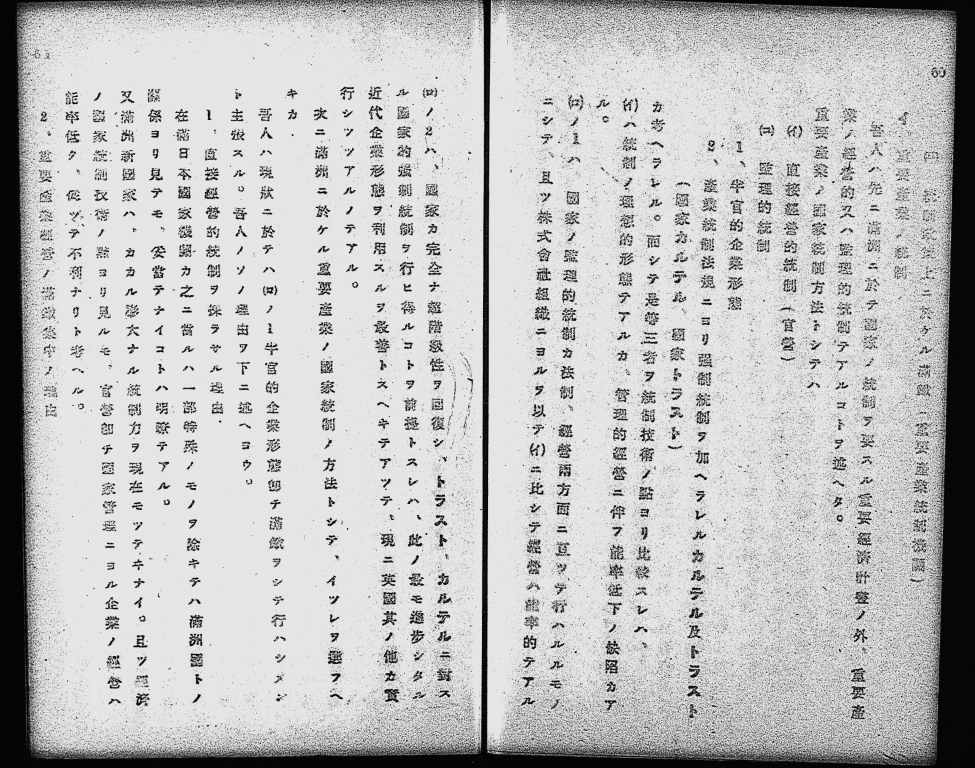 60
統制政策上ニ於ケル満鐵(重要産業統制機關)
イ、重要産業ノ統制
吾人ハ先ニ滿洲ニ於テ國家ノ統制ヲ要スル重要經濟計畫ノ外、重要産
業ノ經營的又ハ監理的統制テアルコトヲ述ヘタ。
重要産業ノ國家統制方法トシテハ
(イ) 直接經營的統制(官營)
(ロ) 監理的統制
1、半官的企業形態
2、産業統制法規ニヨリ強制統制ヲ加ヘラレルカルテル及トラスト
(國家カルテル、國家トラスト)
カ考ヘラレル。而シテ是等三者ヲ統制技術ノ點ヨリ比較スレハ、
(イ)ハ統制ノ理想的形態テアルカ、管理的經營ニ伴フ能率低下ノ缺陷カア
ル。
(ロ)ノ1ハ 國家ノ監理的統制カ法制、經營兩方面ニ亘ツテ行ハルルモノ
ニシテ、且ツ株式會社組織ニヨルヲ以テ(イ)ニ比シテ經營ハ能率的テアル
(ロ)ノ2ハ、國家カ完全ナ超階級性ヲ回復シ、トラスト、カルテルニ對ス
ル國家的強制統制ヲ行ヒ得ルコトヲ前提トスレハ、此ノ最モ進歩シタル
近代企業形態ヲ利用スルヲ最善トスヘキテアツテ、現ニ英國其ノ他カ實
行シツツアルノテアル。
次ニ滿洲ニ於ケル重要産業ノ國家統制ノ方法トシテ、イツレヲ選フヘ
キカ、
吾人ハ現狀ニ於テハ(ロ)ノ1半官的企業形態卽チ滿鐵ヲシテ行ハシメン
ト主張スル。吾人ノソノ理由ヲ下ニ述ヘヨウ。
1、直接經營的統制ヲ採ラサル理由、
在滿日本國家機關カ之ニ當ルハ一部特殊ノモノヲ除キテハ滿洲國トノ
關係ヨリ見テモ、妥當テナイコトハ明瞭テアル。
又滿洲新國家ハ、カカル厖大ナル統制力ヲ現在モツテヰナイ。且ツ經濟
ノ國家統制技術ノ點ヨリ見ルモ、官營卽チ國家管理ニヨル企業ノ經營ハ
能率低ク、從ツテ不利ナリト考ヘル。
2、重要産業經營ノ滿鐵集中ノ理由